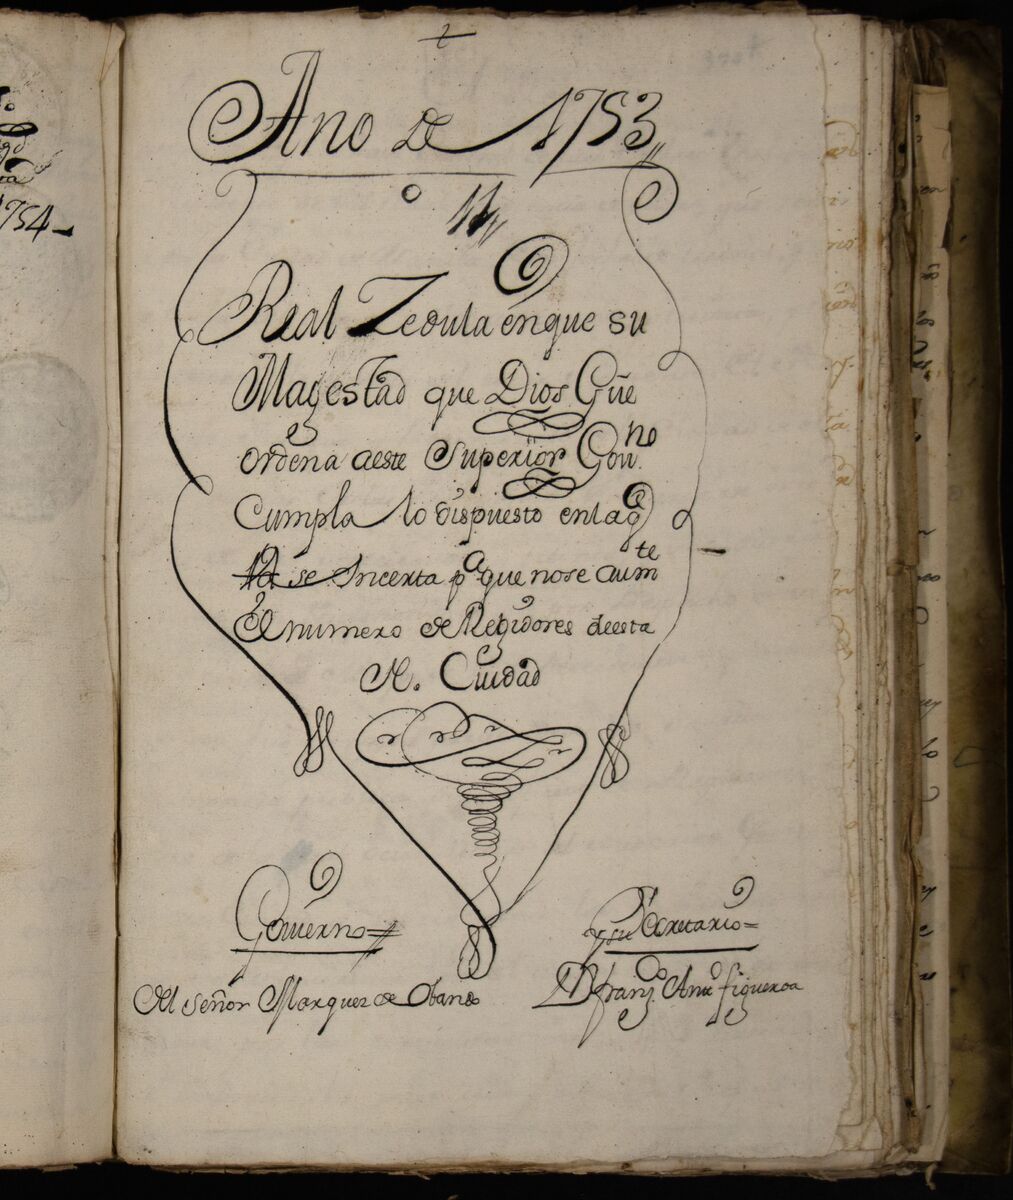 1754
Año de 1753
11
Real Zedula en que su
Magestad que Dios Gũe
ordena a este Superior Gov.no
Cumpla lo dispuesto en la q̃
se Incerta p.a que no se aum.te
El numero de Regidores de esta
N. Ciudad
Goviérno=
y su Secretario=
del señor Marquez de Obando
Dn. franz.co Antt.o figueroa